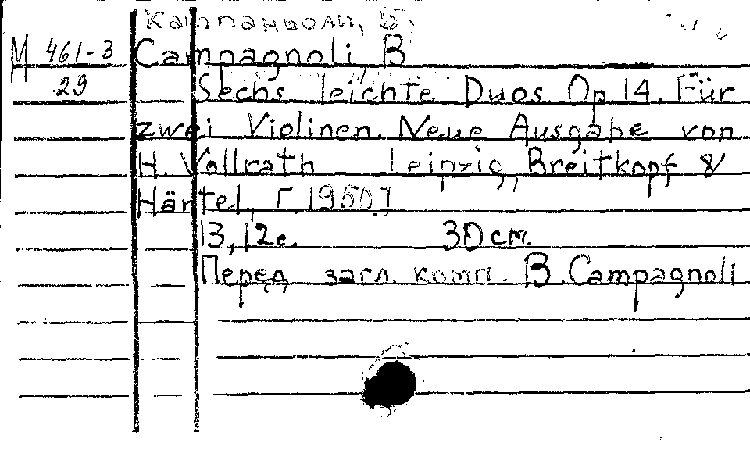 Кампаньоли, Б.
М 461-3
29
Campagnoli, B
Sechs leichte Duos Op 14. Für
zwei Violinen. Neue Ausgabe von
H. Vollrath Leipzig, Breitkopf &
Härtel, [1950.]
13, 12 с. 30 см.
Перед загл. комп. B. Campagnoli